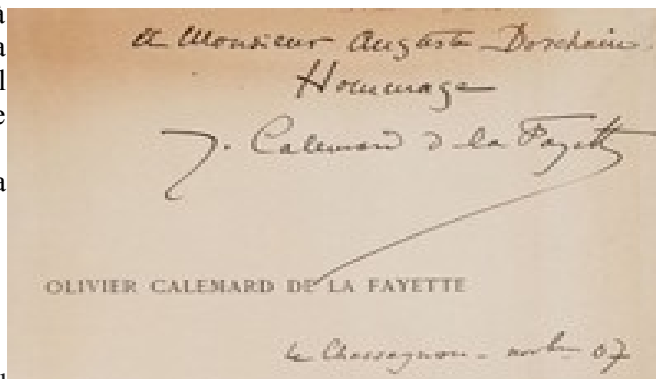 à
a
A Monsieur Auguste Dorchain
l
Hommage
e
J. Calemard de la Fayette
a
OLIVIER CALEMARD DE LA FAYETTE
le Chassagnon - novbre 07
l